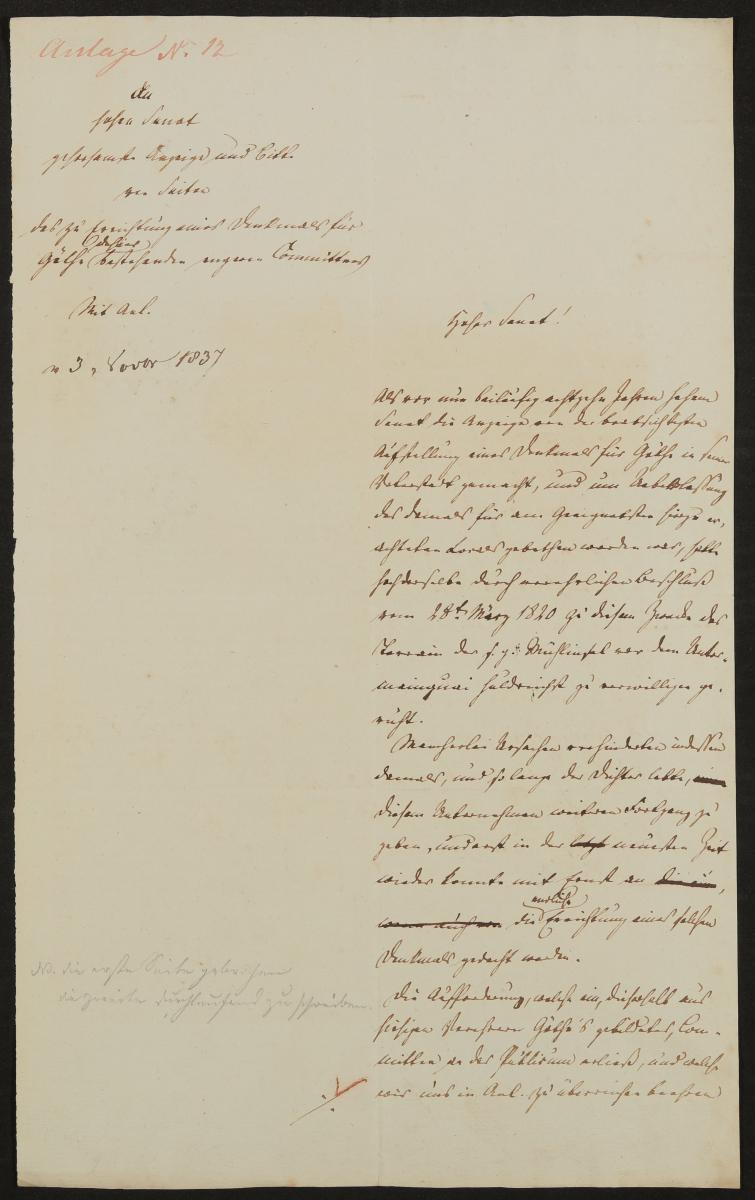 Anlage N. 12
An
hohen Senat
gehorsamste Anzeige und Bitte
von Seiten
des zu Errichtung eines Denkmals für
Göthe dahier bestehenden engeren Committees
Mit Anl.
3. Novbr 1837
Hoher Senat!
Als vor nun beiläufig achtzehn Jahren hohem
Senat die Anzeige von der beabsichtigten
Aufstellung eines Denkmals für Göthe in seiner
Vaterstadt gemacht, und um Ueberlassung
des damals für am Geeignetsten hiezu er,
achteten Locals gebethen worden war, hatte
hochderselbe durch verehrlichen Beschluß
vom 28t. März 1820 zu diesem Zwecke das
Terrain der s. g. Mühlinsel vor dem Unter-
mainquai huldreichst zu verwilligen ge-
ruht.
Mancherlei Ursachen verhinderten indessen
damals, und so lange der Dichter lebte,
diesem Unternehmen weiteren Fortgang zu
geben, und erst in der letzt neuesten Zeit
wieder konnte mit Ernst an
wenn auch die endliche Errichtung eines solchen
Denkmals gedacht werden.
Die Aufforderung, welche ein, dieserhalb aus
hiesigen Verehrern Göthe's gebildetes, Com-
mittee an das Publicum erließ, und welche
wir uns in Anl. zu überreichen beehren
NB. die erste Seite gebrochen
die zweite durchlaufend zu schreiben.